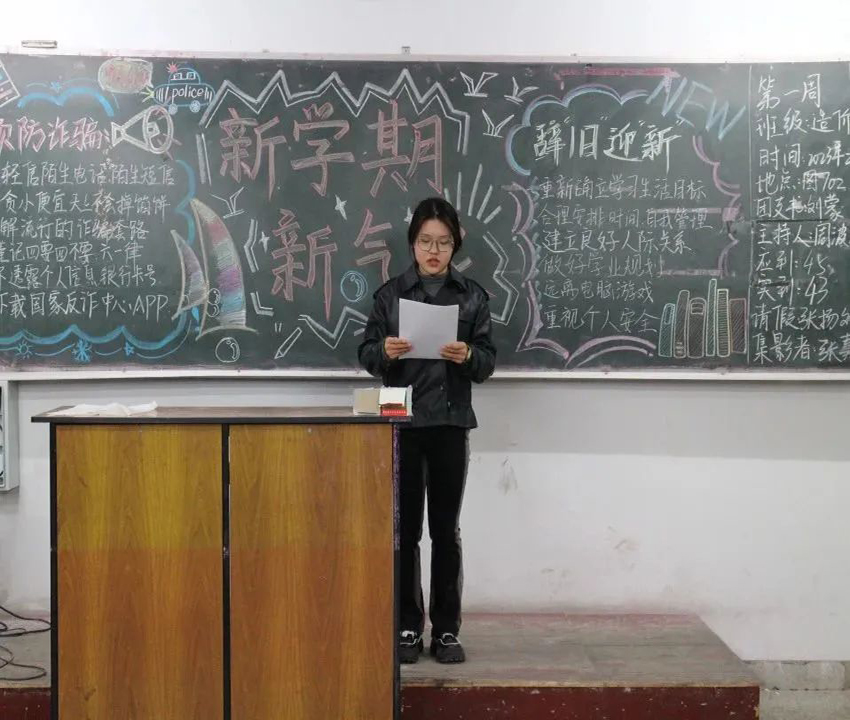 police
防诈骗
轻信陌生电话 陌生短信
贪小便宜天上掉馅饼
解流行的诈骗套路
谨记四要四不要六一律
透露个人信息银行卡号
下载国家反诈中心APP
新学期
新气
辞"旧"迎"新"
NEW
重新确立学习生活目标
合理安排时间 自我管理
建立良好人际关系
做好学业规划
远离电脑游戏
重视个人安全
第一周
班级:造价
时间:
地点:图702
团支书
主持人:周波
应到:45
实到:43
请假:张扬